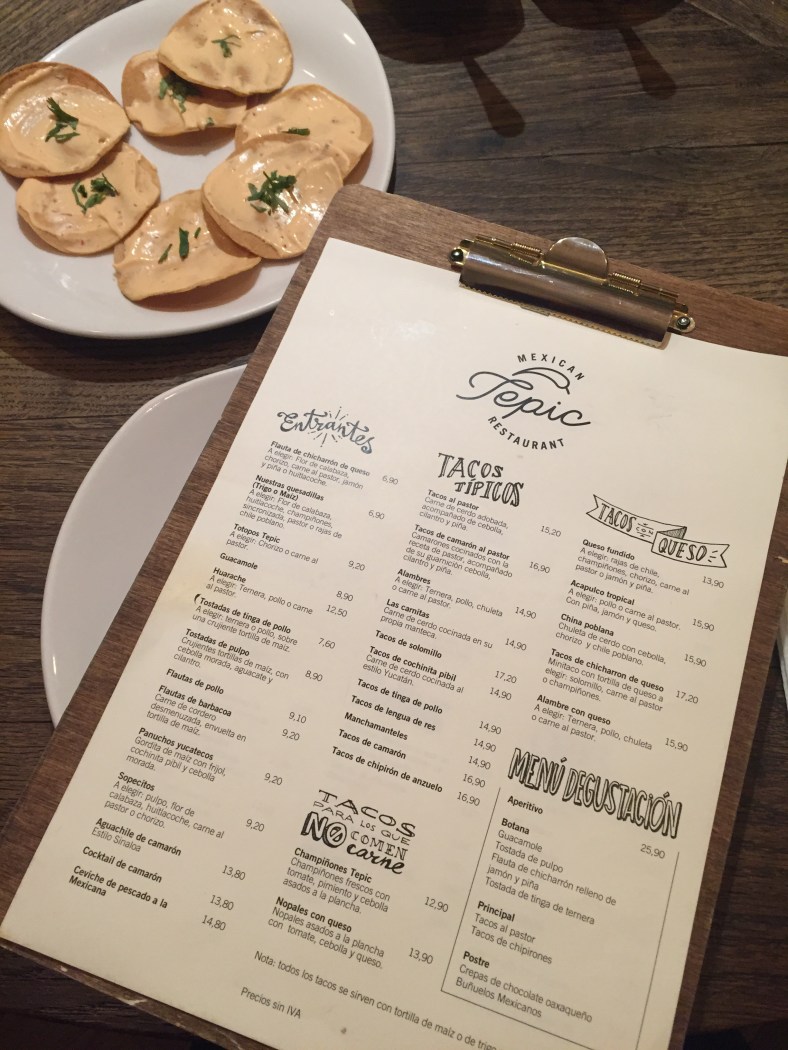 MEXICAN
Tepic
RESTAURANT
Entrantes
Flauta de chicharrón de queso
A elegir: Flor de calabaza,
chorizo, carne al pastor, jamón
y piña o huitlacoche.
6,90
Nuestras quesadillas
(Trigo o Maíz)
A elegir: Flor de calabaza,
huitlacoche, champiñones,
sincronizada, pastor o rajas de
chile poblano.
6,90
Totopos Tepic
A elegir: Chorizo o carne al
pastor.
9,20
Guacamole
8,90
Huarache
A elegir: Ternera, pollo o carne
al pastor.
12,50
Tostadas de tinga de pollo
A elegir: ternera o pollo, sobre
una crujiente tortilla de maíz.
7,60
Tostadas de pulpo
Crujientes tortillas de maíz, con
cebolla morada, aguacate y
cilantro.
8,90
Flautas de pollo
9,10
Flautas de barbacoa
Carne de cordero
desmenuzada, envuelta en
tortilla de maíz.
9,20
Panuchos yucatecos
Gordita de maíz con frijol,
cochinita pibil y cebolla
morada.
9,20
Sopecitos
A elegir: pulpo, flor de
calabaza, huitlacoche, carne al
pastor o chorizo.
9,20
Aguachile de camarón
Estilo Sinaloa
13,80
Cocktail de camarón
13,80
Ceviche de pescado a la
Mexicana
14,80
TACOS
TÍPICOS
Tacos al pastor
Carne de cerdo adobada,
acompañado de cebolla,
cilantro y piña.
15,20
Tacos de camarón al pastor
Camarones cocinados con la
receta de pastor, acompañado
de su guarnición cebolla,
cilantro y piña.
16,90
Alambres
A elegir: Ternera, pollo, chuleta
o carne al pastor.
14,90
Las carnitas
Carne de cerdo cocinada en su
propia manteca.
14,90
Tacos de solomillo
17,20
Tacos de cochinita pibil
Carne de cerdo cocinada al
estilo Yucatán.
14,90
Tacos de tinga de pollo
14,90
Tacos de lengua de res
14,90
Manchamanteles
14,90
Tacos de camarón
16,90
Tacos de chipirón de anzuelo
16,90
TACOS
PARA LOS QUE
NO COMEN
carne
Champiñones Tepic
Champiñones frescos con
tomate, pimiento y cebolla
asados a la plancha.
12,90
Nopales con queso
Nopales asados a la plancha
con tomate, cebolla y queso.
13,90
TACOS con QUESO
Queso fundido
A elegir: rajas de chile,
champiñones, chorizo, carne al
pastor o jamón y piña.
13,90
Acapulco tropical
A elegir: pollo o carne al pastor.
Con piña, jamón y queso.
15,90
China poblana
Chuleta de cerdo con cebolla,
chorizo y chile poblano.
15,90
Tacos de chicharron de queso
Minitaco con tortilla de queso a
elegir: solomillo, carne al pastor
o champiñones.
17,20
Alambre con queso
A elegir: Ternera, pollo, chuleta
o carne al pastor.
15,90
MENÚ DEGUSTACIÓN
25,90
Aperitivo
Botana
Guacamole
Tostada de pulpo
Flauta de chicharrón relleno de
jamón y piña
Tostada de tinga de ternera
Principal
Tacos al pastor
Tacos de chipirones
Postre
Crepas de chocolate oaxaqueño
Buñuelos Mexicanos
Nota: todos los tacos se sirven con tortilla de maíz o de trigo
Precios sin IVA